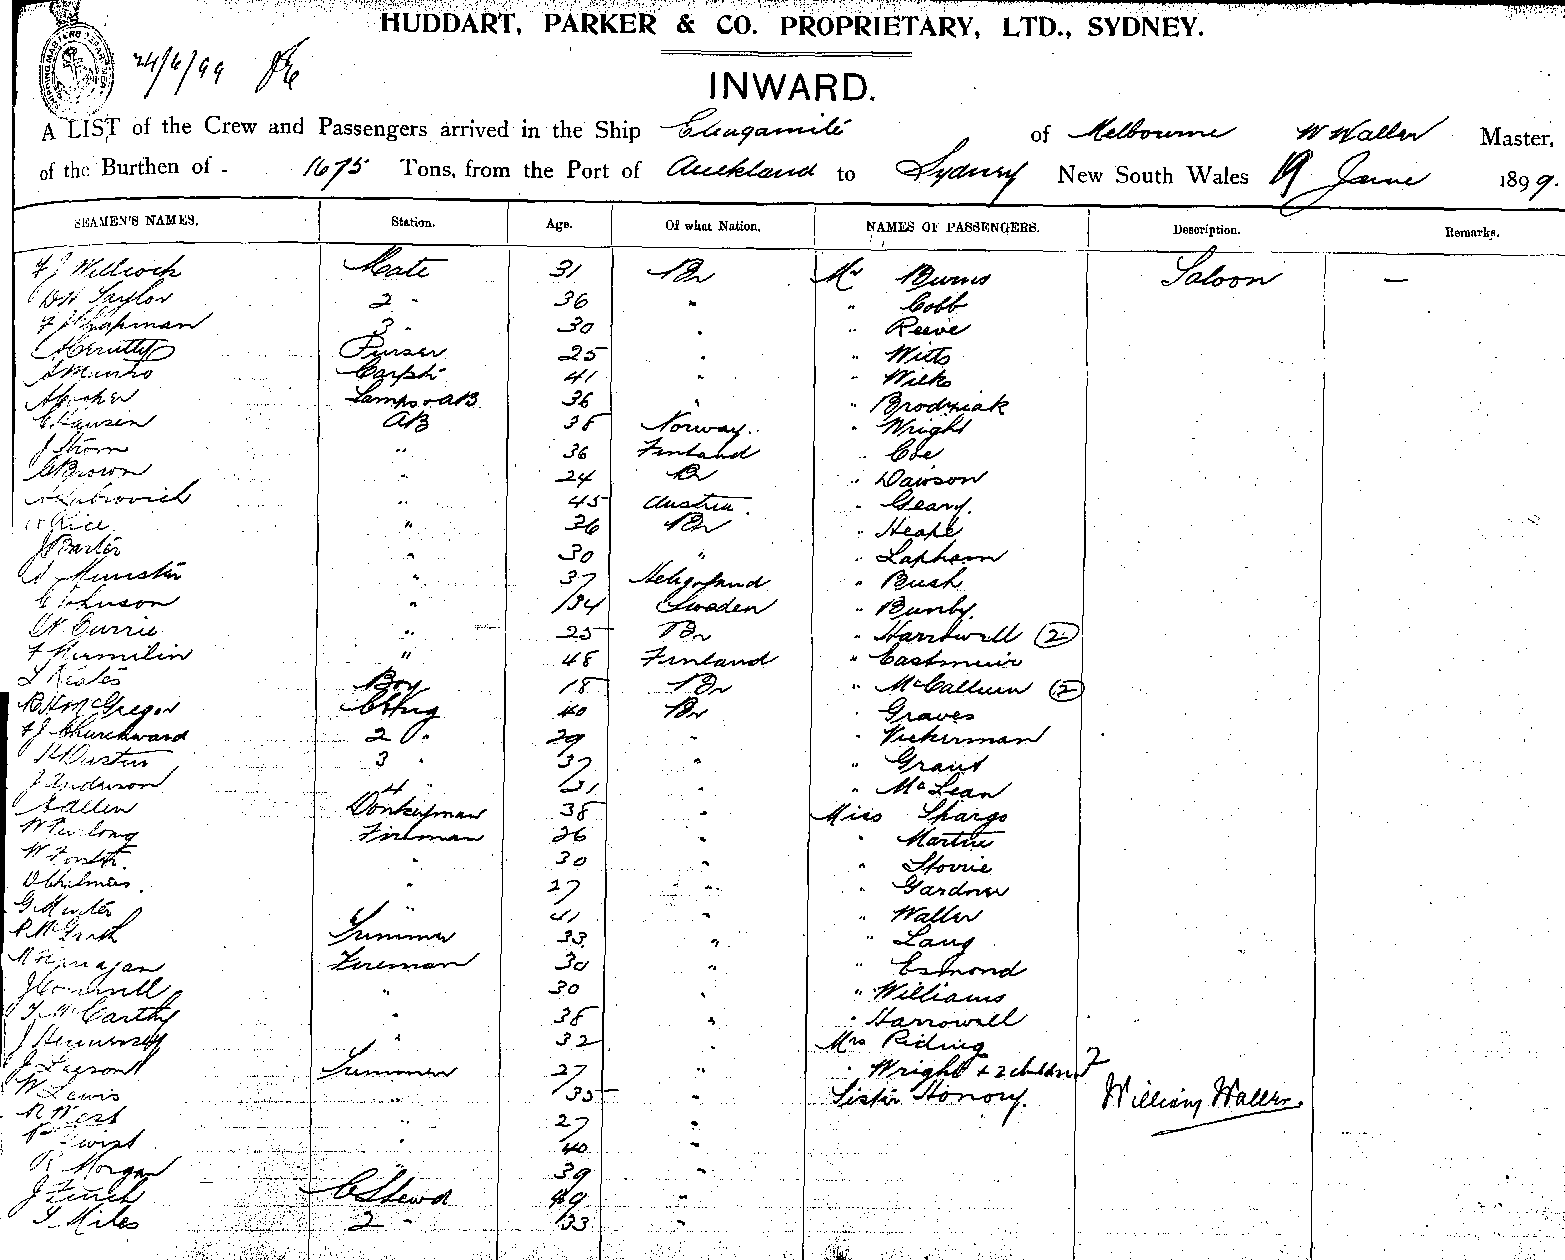 HUDDART, PARKER & CO. PROPRIETARY, LTD., SYDNEY.
24/6/99
INWARD.
A LIST of the Crew and Passengers arrived in the Ship Elingamite of Melbourne W Waller Master,
of the Burthen of 1675 Tons, from the Port of Auckland to Sydney New South Wales 19 June 1899.
SEAMEN'S NAMES. Station. Age. Of what Nation. NAMES OF PASSENGERS. Description. Remarks.
F J Willcock Mate 31 Br Mr Burns Saloon —
Taylor 2 " 36 " " Cobb
F J Chapman 3 " 30 " " Reeve
Purser 25 " " Witts
A Munro Carptr 41 " " Wilks
Lamps & AB 36 " " Brodziak
C Hansen AB 38 Norway. " Wright
J Strom " 36 Finland " Coe
C Brown " 24 Br " Dawson
" 45 Austria. " Geary.
Rice " 36 Br " Heape
J Barter " 30 " " Lapham
Munster " 37 Heligoland " Bush
C Johnson " 34 Sweden " Bunby.
W Currie " 25 Br " Harrowell (2)
" 48 Finland " Eastmuir
Boy 18 Br " McCallum (2)
McGregor C Eng 40 Br " Graves
F J Churchward 2 " 29 " " Vickerman
3 " 37 " " Grant
J Anderson 4 " 31 " " McLean
Allen Donkeyman 38 " Miss Shargo
W Furlong Fireman 26 " " Martin
W Forster. " 30 " " Storrie
" 27 " " Gardner
G Munter " 41 " " Waller
McGrath Trimmer 33 " " Lang
Fireman 30 " " Esmond
" 30 " " Williams
T McCarthy " 38 " " Harrowell
J Hennessy " 32 " Mrs Riding
J Trimmer 27 " " Wright + 2 children 2
W Lewis " 35 " Sister Honory. William Waller.
R West " 27 "
" 40 "
R Morgan " 39 "
J Finch C Stewd 49 "
T Miles 2 " 33 "